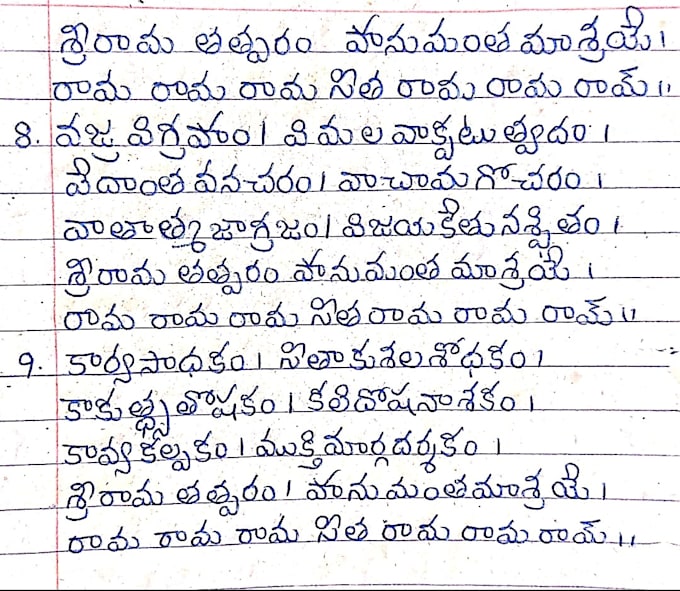 శ్రీరామ తత్పరం హనుమంత మాశ్రయే।
రామ రామ రామ సీత రామ రామ రామ్॥
8. వజ్ర విగ్రహం। విమల వాక్పటు త్వదం।
వేదాంత వనచరం। వాచామగోచరం।
వాతాత్మజాగ్రజం। విజయకేతు నశ్చితం।
శ్రీరామ తత్పరం హనుమంత మాశ్రయే।
రామ రామ రామ సీత రామ రామ రామ్॥
9. కార్యసాధకం। సీతాకుశల శోధకం।
కాకుత్థ్స తోషకం। కలిదోషనాశకం।
కావ్యకల్పకం। ముక్తిమార్గదర్శకం।
శ్రీరామ తత్పరం। హనుమంతమాశ్రయే।
రామ రామ రామ సీత రామ రామ రామ్॥